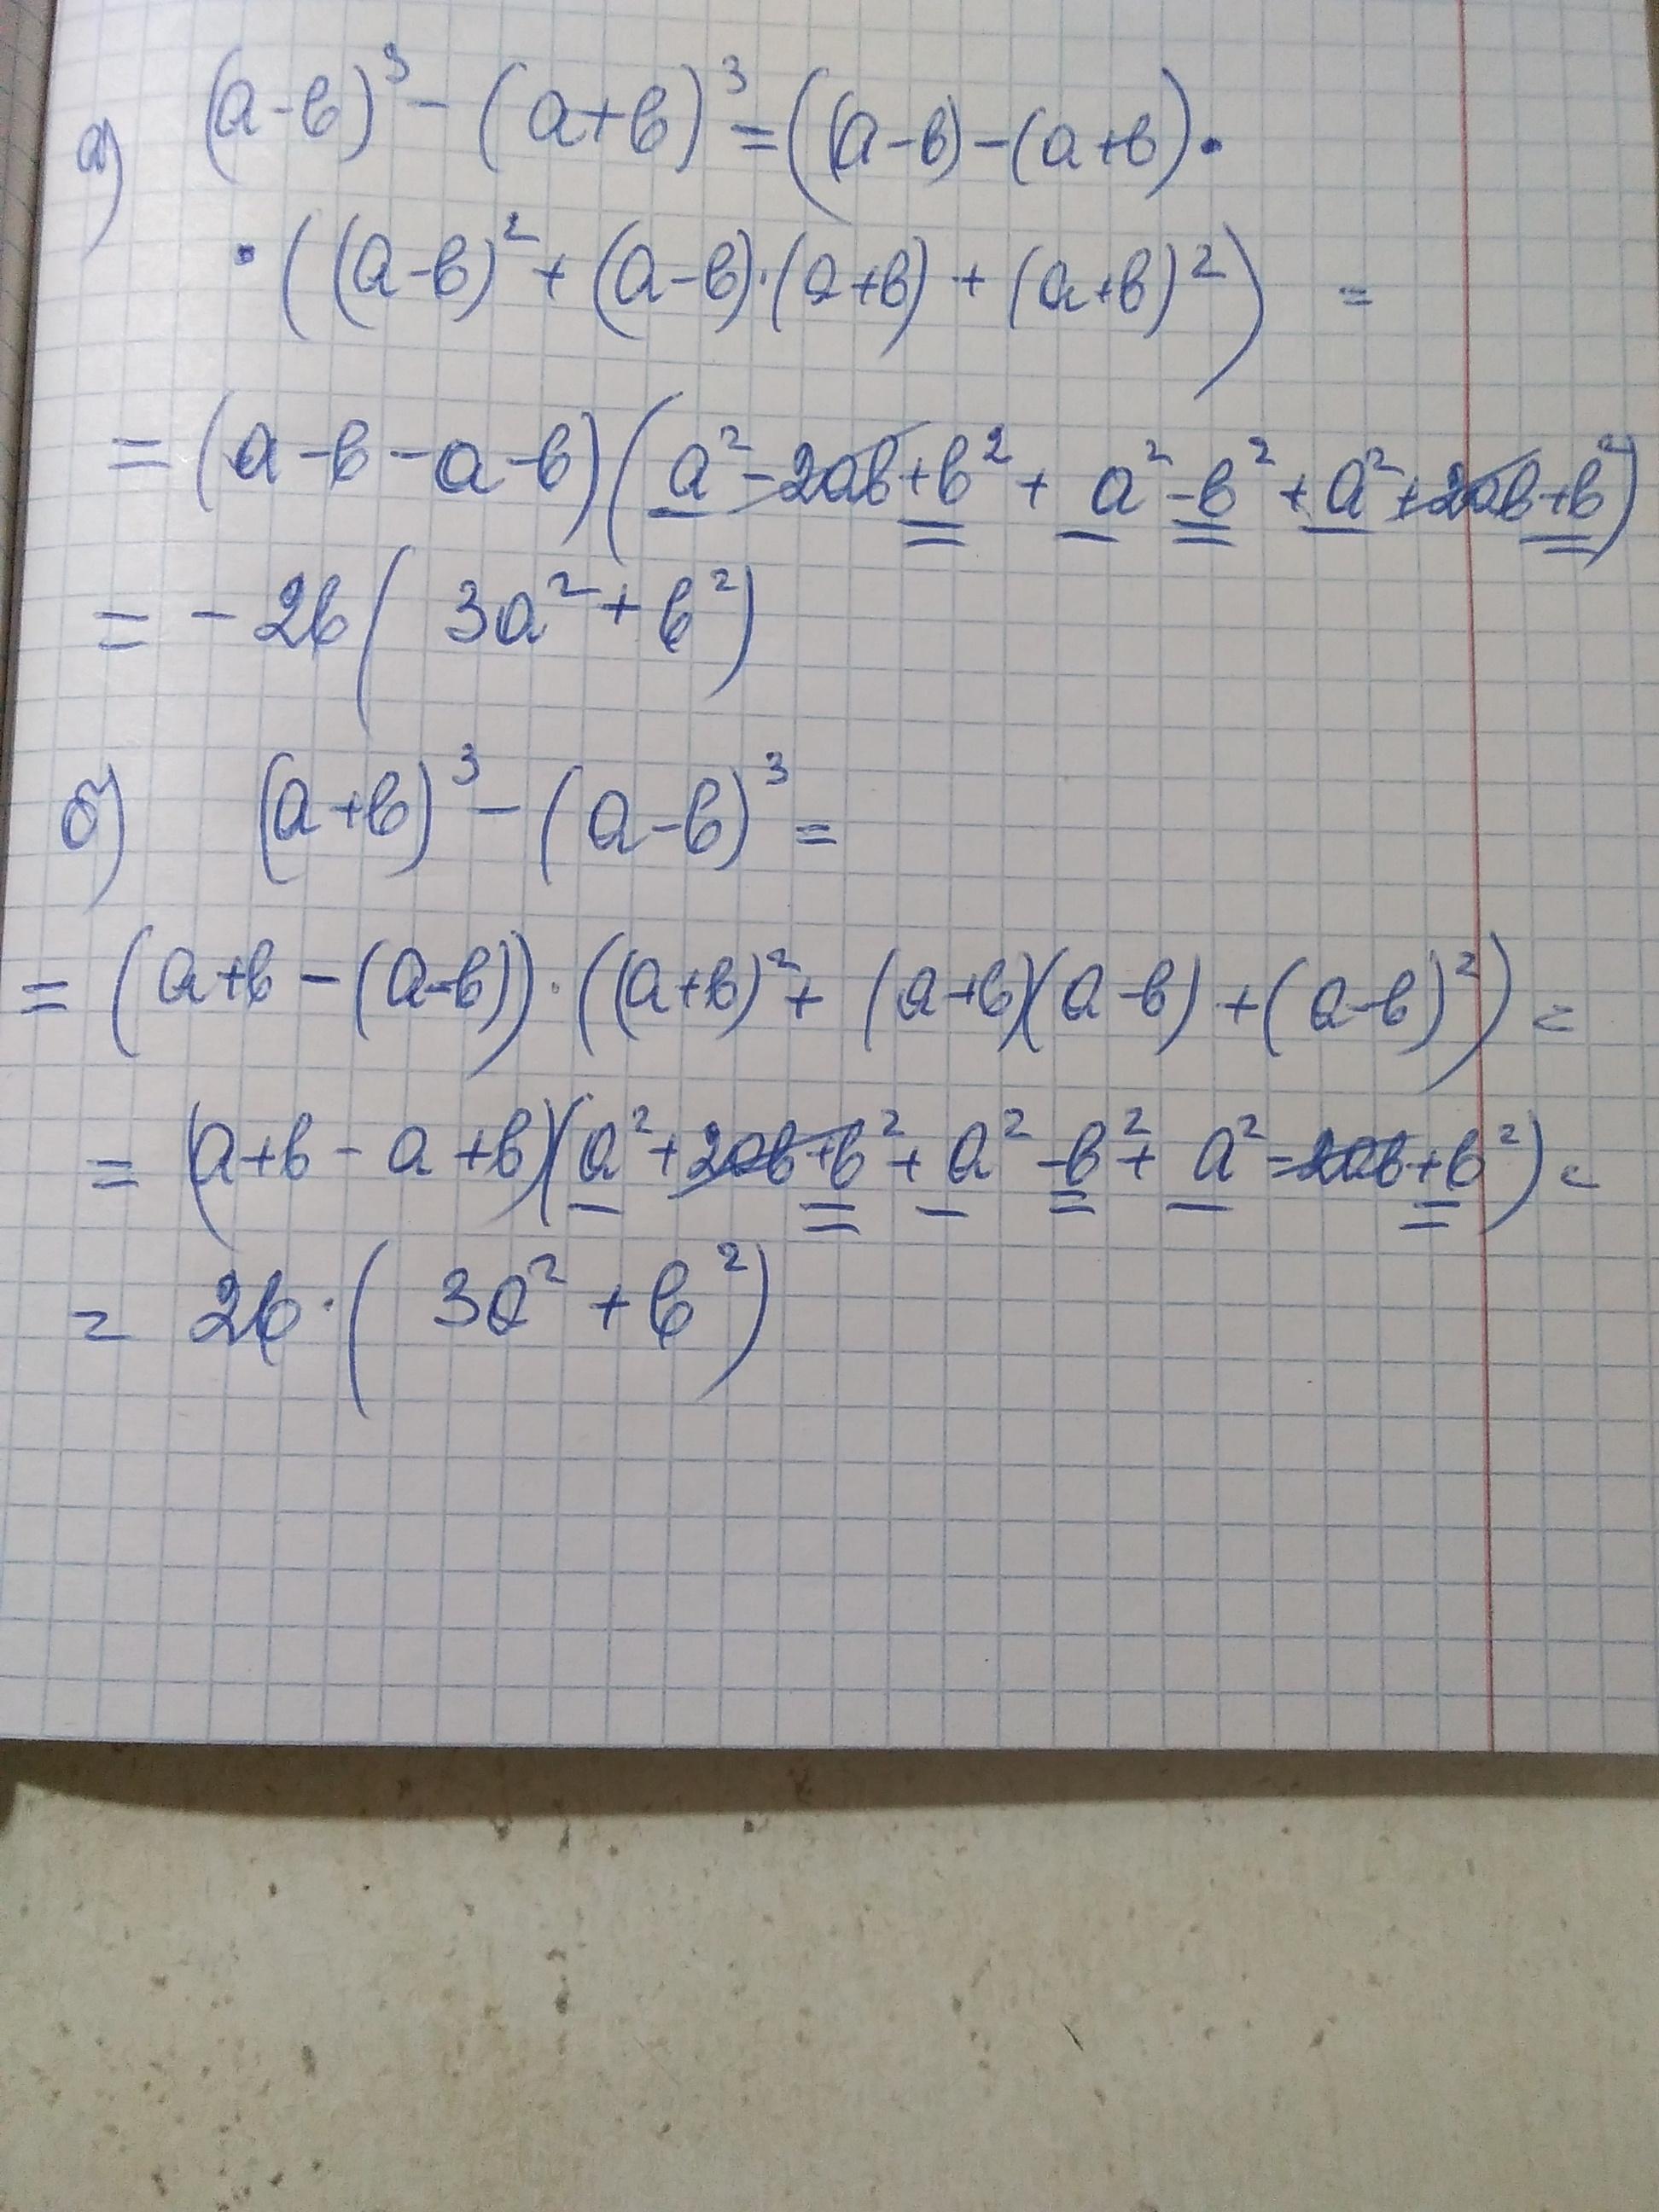 а) (a-b)³ - (a+b)³ = ((a-b)-(a+b)·
·((a-b)² + (a-b)·(a+b) + (a+b)²) =
= (a-b-a-b)(a²-2ab+b² + a²-b² + a²+2ab+b²)
= -2b(3a² + b²)
б) (a+b)³ - (a-b)³ =
= (a+b-(a-b))·((a+b)² + (a+b)(a-b) + (a-b)²) =
= (a+b-a+b)(a²+2ab+b² + a²-b² + a²-2ab+b²) =
= 2b·(3a² + b²)